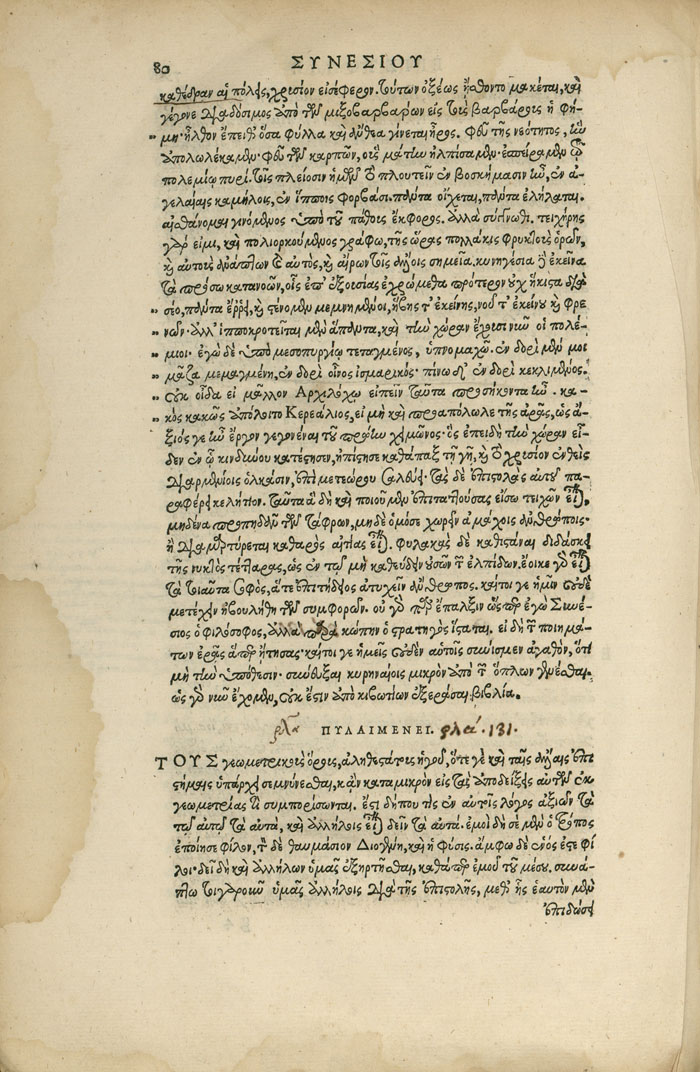 80
ΣΥΝΕΣΙΟΥ
καθέδραν αἱ πόλεις, χρυσίον εἰσέφερον. τούτων ὀξέως ᾔσθοντο μακέται, καὶ
γέγονε διαδόσιμος ἀπὸ τῶν μιξοβαρβάρων εἰς τοὺς βαρβάρους ἡ φή-
μη· ἦλθον ἔπειθ' ὅσα φύλλα καὶ ἄνθεα γίνεται ἦρος. φεῦ τῆς νεότητος, ἣν
ἀπολωλέκαμεν· φεῦ τῶν καρπῶν, οὓς μάτην ἠλπίσαμεν· ἐσπείραμεν τῷ
πολεμίῳ πυρί. τοῖς πλείοσιν ἡμῶν τὸ πλουτεῖν ἐν βοσκήμασιν ἦν, ἐν ἀ-
γελαίαις καμήλοις, ἐν ἵπποις φορβάσι. πάντα οἴχεται, πάντα ἐλήλαται.
αἰσθάνομαι γινόμενος ὑπὸ τοῦ πάθους ἔκφορος. ἀλλὰ σύγγνωθι. τειχήρης
γάρ εἰμι, καὶ πολιορκούμενος γράφω, τῆς ὥρας πολλάκις φρυκτοὺς ὁρῶν,
καὶ αὐτοὺς ἀνάπτων αὐτὸς, καὶ αἴρων τοῖς ἄλλοις σημεῖα. κυνηγέσια δ' ἐκεῖνα
τὰ πρόσω κατανοῶν, οἷς ἐπ' ἐξουσίας ἐχρώμεθα πρότερον οὐχ ἥκιστα διὰ
σέο, πάντα ἔρρει, καὶ στένομεν μεμνημένοι, ἥβης τ' ἐκείνης, νοῦ τ' ἐκείνου καὶ φρε
νῶν· ἀλλ' ἱπποκροτεῖται μὲν ἅπαντα, καὶ τὴν χώραν ἔχουσι νῦν οἱ πολέ-
μιοι. ἐγὼ δὲ ὑπὸ μεσοπυργίῳ τεταγμένος, ὑπνομαχῶ. ἐν δορὶ μέν μοι
μᾶζα μεμαγμένη, ἐν δορὶ οἶνος ἰσμαρικός· πίνω δ' ἐν δορὶ κεκλιμένος.
οὐκ οἶδα εἰ μᾶλλον Ἀρχιλόχῳ εἰπεῖν ταῦτα προσήκοντα ἦν. κα-
κὸς κακῶς ἀπόλοιτο Κερεάλιος, εἰ μὴ καὶ προαπόλωλε τῆς ἀρᾶς, ὡς ἄ-
ξιός γε ἦν ἔργον γεγονέναι τοῦ πρώην χειμῶνος· ὃς ἐπειδὴ τὴν χώραν εἶ-
δεν ἐν ᾧ κινδύνου κατέστησεν, ἠπίστησε καθάπαξ τῇ γῇ, καὶ τὸ χρυσίον ἐνθεὶς
διαρμένοις ὁλκάσιν, ἐπὶ μετεώρου σαλεύει. τὰς δὲ ἐπιστολὰς αὐτοῦ πα-
ραφέρει κελήτιον. ταῦτα ἃ δὴ καὶ ποιοῦμεν ἐπιταττούσας εἴσω τειχῶν εἶναι,
μηδένα προπηδᾶν τῶν τάφρων, μηδὲ ὁμόσε χωρεῖν ἀμάχοις ἀνθρώποις·
ἢ διαμαρτύρεται καθαρὸς αἰτίας εἶναι. φυλακὰς δὲ καθιστάναι διδάσκει
τῆς νυκτὸς τέτταρας, ὡς ἐν τῷ μὴ καθεύδειν οὐσῶν τῶν ἐλπίδων. ἔοικε γὰρ εἶναι
τὰ τοιαῦτα σοφὸς, ἅτε ἐπιτήδειος ἀτυχεῖν ἄνθρωπος. καίτοι γε ἡμῖν οὐδὲ
μετέχειν ἠβουλήθη τῶν συμφορῶν. οὐ γὰρ παρ' ἔπαλξιν ὥσπερ ἐγὼ Συνέ-
σιος ὁ φιλόσοφος, ἀλλὰ παρὰ κώπην ὁ στρατηγὸς ἵσταται. εἰ δὴ τῶν ποιημά-
των ἐρᾷς ἅπερ ᾔτησας· καίτοι γε ἡμεῖς οὐδὲν αὐτοῖς σύνισμεν ἀγαθὸν, ὅτι
μὴ τὴν ὑπόθεσιν· σύνευξαι κυρηναίοις μικρὸν ἀπὸ τῶν ὅπλων γενέσθαι.
ὡς γὰρ νῦν ἔχομεν, οὐκ ἔστιν ἀπὸ κιβωτίων ἐξερᾶσαι βιβλία.
ΠΥΛΑΙΜΕΝΕΙ. ρλα΄. 131.
ΤΟΥΣ γεωμετρικοὺς ὅρους, ἀληθεστάτους ἡγοῦ, ὅτε γε καὶ ταῖς ἄλλαις ἐπι
στήμαις ὑπάρχει σεμνύνεσθαι, κἂν κατὰ μικρὸν εἰς τὰς ἀποδείξεις αὐτῶν ἐκ
γεωμετρίας τι συμπορίσωνται. ἔστι δήπου τις ἐν αὐτοῖς λόγος ἀξιῶν τὰ
τῷ αὐτῷ τὰ αὐτὰ, καὶ ἀλλήλοις εἶναι δεῖν τὰ αὐτά. ἐμοὶ δὴ σὲ μὲν ὁ τρόπος
ἐποίησε φίλον, τὸν δὲ θαυμάσιον Διογένη, καὶ ἡ φύσις. ἄμφω δὲ ἑνὸς ἐστὲ φί
λοι· δεῖ δὴ καὶ ἀλλήλων ὑμᾶς ἐξηρτῆσθαι, καθάπερ ἐμοῦ τοῦ μέσου. συνά-
πτω τοιγαροῦν ὑμᾶς ἀλλήλοις διὰ τῆς ἐπιστολῆς, μεθ' ἧς ἑαυτὸν μὲν
ἐπιδώσει